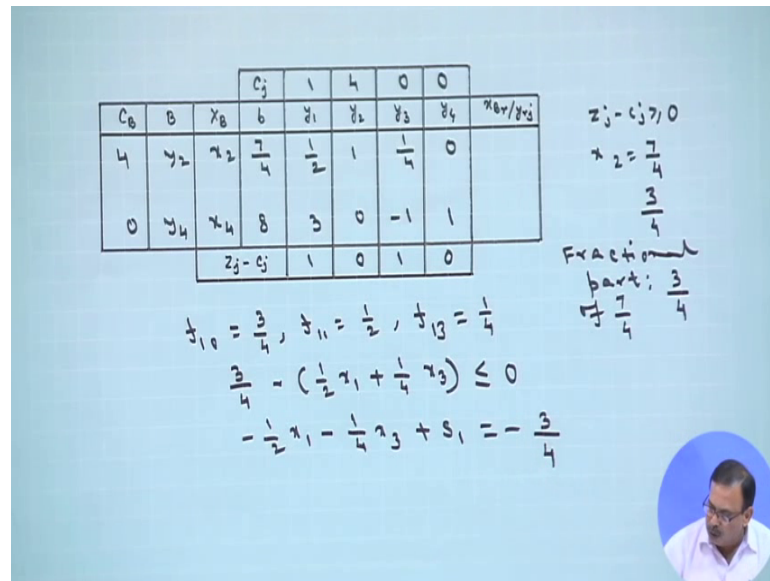 Cj 1 4 0 0
CB B XB b y1 y2 y3 y4 xBr/yrj
4 y2 x2 7/4 1/2 1 1/4 0
0 y4 x4 8 3 0 -1 1
zj - cj 1 0 1 0
zj - cj ≥ 0
x2 = 7/4
3/4
Fractional
part: 3/4
of 7/4
f10 = 3/4, f11 = 1/2, f13 = 1/4
3/4 - (1/2 x1 + 1/4 x3) ≤ 0
-1/2 x1 - 1/4 x3 + s1 = - 3/4